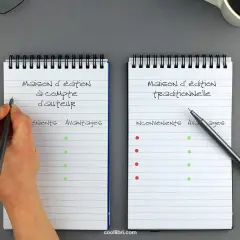 Maison d'édition
à compte
d'auteur
Avantages
Maison d'édition
traditionnelle
Inconvénients Avantages
coollibri.com